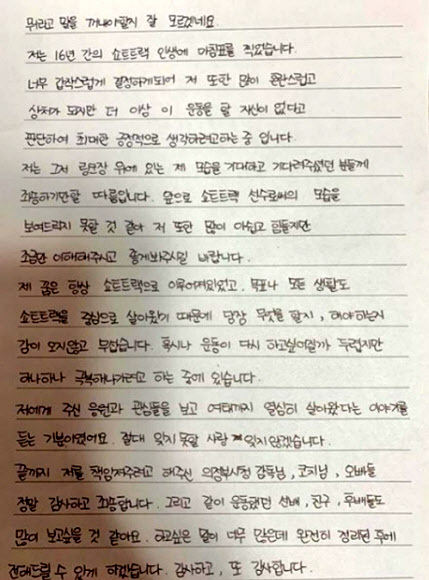 뭐라고 말을 꺼내야할지 잘 모르겠네요.
저는 16년 간의 쇼트트랙 인생에 마침표를 찍었습니다.
너무 갑작스럽게 결정하게되어 저 또한 많이 혼란스럽고
상처가 되지만 더 이상 이 운동을 할 자신이 없다고
판단하여 최대한 긍정적으로 생각하려고하는 중 입니다.
저는 그저 링크장 위에 있는 제 모습을 기대하고 기다려주셨던 분들께
죄송하기만할 따름입니다. 앞으로 쇼트트랙 선수로써의 모습을
보여드리지 못할 것 같아 저 또한 많이 아쉽고 힘들지만
조금만 이해해주시고 좋게봐주시길 바랍니다.
제 꿈은 항상 쇼트트랙으로 이루어져있었고, 목표나 모든 생활도
쇼트트랙을 중심으로 살아왔기 때문에 당장 무엇을 할지, 해야하는지
감이 오지않고 무섭습니다. 혹시나 운동이 다시 하고싶어질까 두렵지만
하나하나 극복해나가려고 하는 중에 있습니다.
저에게 주신 응원과 관심들을 보고 여태까지 열심히 살아왔다는 이야기를
듣는 기분이었어요. 절대 잊지 못할 사랑 잊지않겠습니다.
끝까지 저를 책임져주려고 해주신 의정부시청 감독님, 코치님, 오빠들
정말 감사하고 죄송합니다. 그리고 같이 운동했던 선배, 친구, 후배들도
많이 보고싶을 것 같아요. 하고싶은 말이 너무 많은데 완전히 정리된 후에
전해드릴 수 있게 하겠습니다. 감사하고, 또 감사합니다.